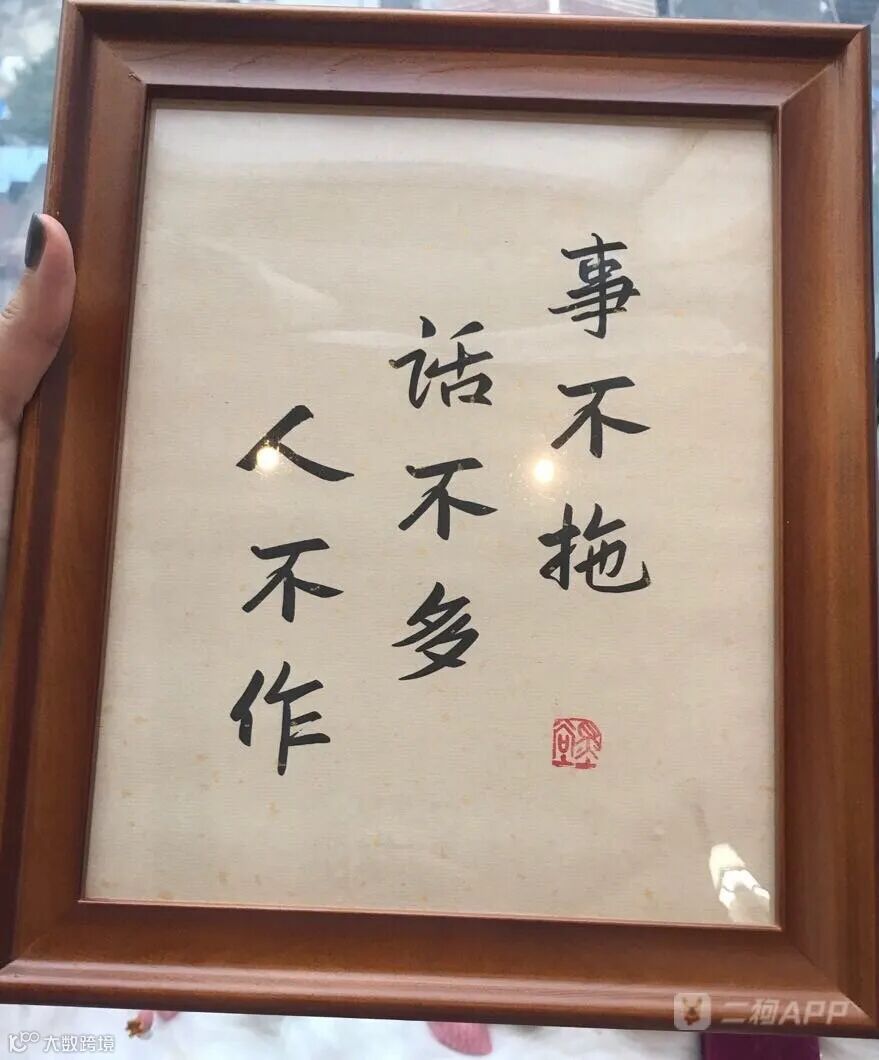 事不拖
话不多
人不作
二柯APP
大数跨境